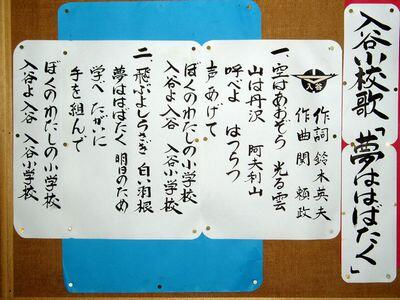 入谷小校歌「夢ははばたく」
入谷
作詞 鈴木英夫
作曲 関 頼政
一、空はあおぞら 光る雲
山は丹沢 阿夫利山
呼べよ はつらつ
声あげて
ぼくのわたしの 小学校
入谷よ入谷 入谷小学校
二、飛ぶよしらさぎ 白い羽根
夢ははばたく 明日のため
学べ たがいに
手を組んで
ぼくのわたしの 小学校
入谷よ入谷 入谷小学校